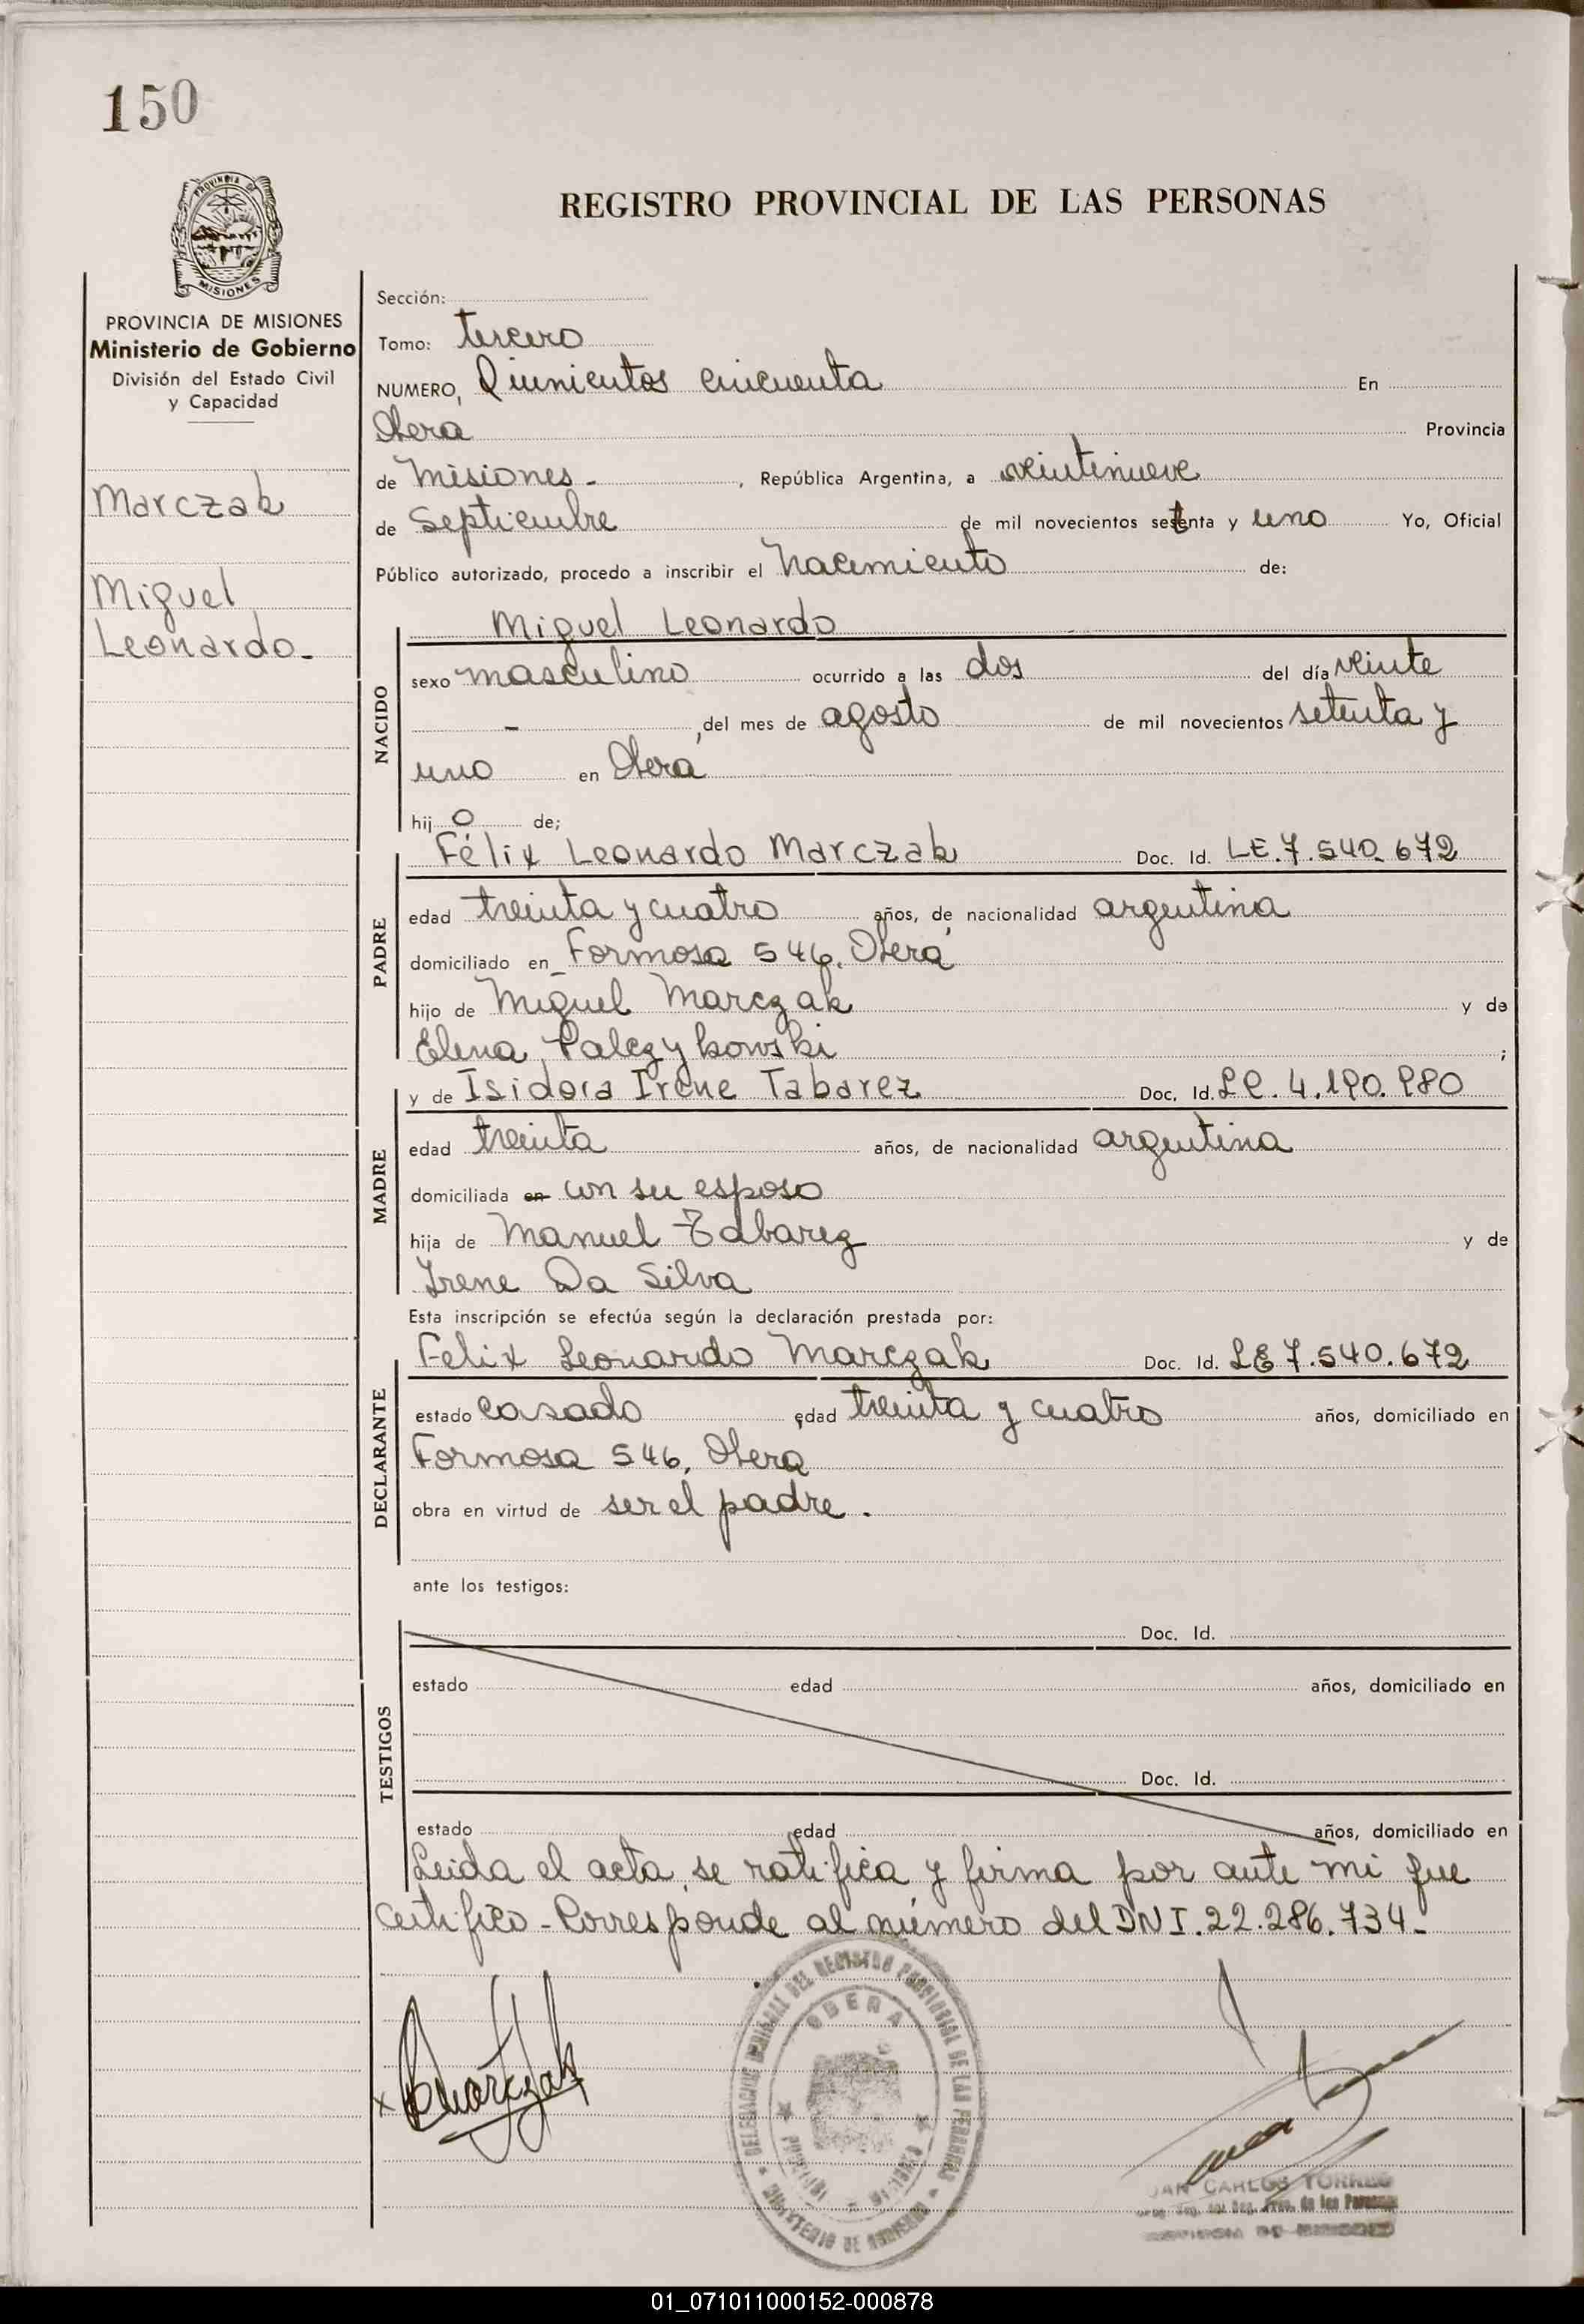 150
PROVINCIA DE
MISIONES
REGISTRO PROVINCIAL DE LAS PERSONAS
PROVINCIA DE MISIONES
Ministerio de Gobierno
División del Estado Civil
y Capacidad
Marczak
Miguel
Leonardo.-
Sección:
Tomo: tercero
NUMERO, Quinientos cincuenta En
Obera Provincia
de Misiones - , República Argentina, a veintinueve
de Septiembre de mil novecientos setenta y uno Yo, Oficial
Público autorizado, procedo a inscribir el Nacimiento de:
Miguel Leonardo
NACIDO
sexo masculino ocurrido a las dos del día veinte
- , del mes de agosto de mil novecientos setenta y
uno en Oberá
hij o de;
PADRE
Félix Leonardo Marczak Doc. Id. LE. 7.540.672
edad treinta y cuatro años, de nacionalidad argentina
domiciliado en Formosa 546. Oberá
hijo de Miguel Marczak y de
Elena Palczykowski ;
MADRE
y de Isidora Irene Tabarez Doc. Id. LC. 4.190.980
edad treinta años, de nacionalidad argentina
domiciliada en con su esposo
hija de Manuel Tabarez y de
Irene Da Silva
Esta inscripción se efectúa según la declaración prestada por:
DECLARANTE
Felix Leonardo Marczak Doc. Id. LE 7.540.672
estado casado edad treinta y cuatro años, domiciliado en
Formosa 546, Obera
obra en virtud de ser el padre.
ante los testigos:
TESTIGOS
Doc. Id.
estado edad años, domiciliado en
Doc. Id.
estado edad años, domiciliado en
Leida el acta, se ratifica y firma por ante mi que
certifico - Corresponde al número del DNI. 22.286.734-
x Marczak
DELEGACION DEL REGISTRO PROVINCIAL DE LAS PERSONAS
OBERA
MINISTERIO DE GOBIERNO
JUAN CARLOS TORRES
01_071011000152-000878